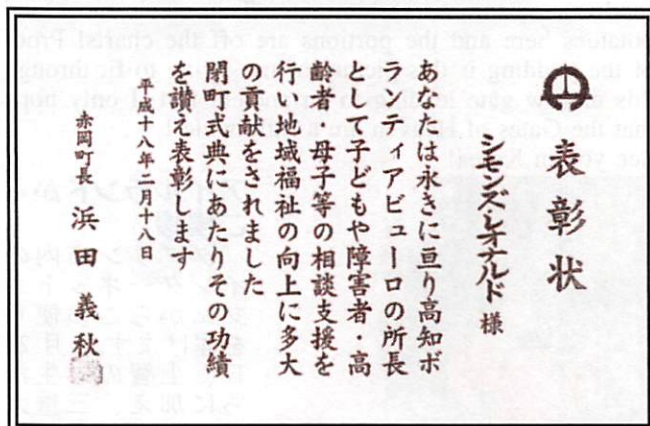 表彰状
シモンズ・レオナルド 様
あなたは永きに亘り高知ボ
ランティアビューロの所長
として子どもや障害者・高
齢者・母子等の相談支援を
行い地域福祉の向上に多大
の貢献をされました
閉町式典にあたりその功績
を讃え表彰します
平成十八年二月十八日
赤岡町長 浜田義秋